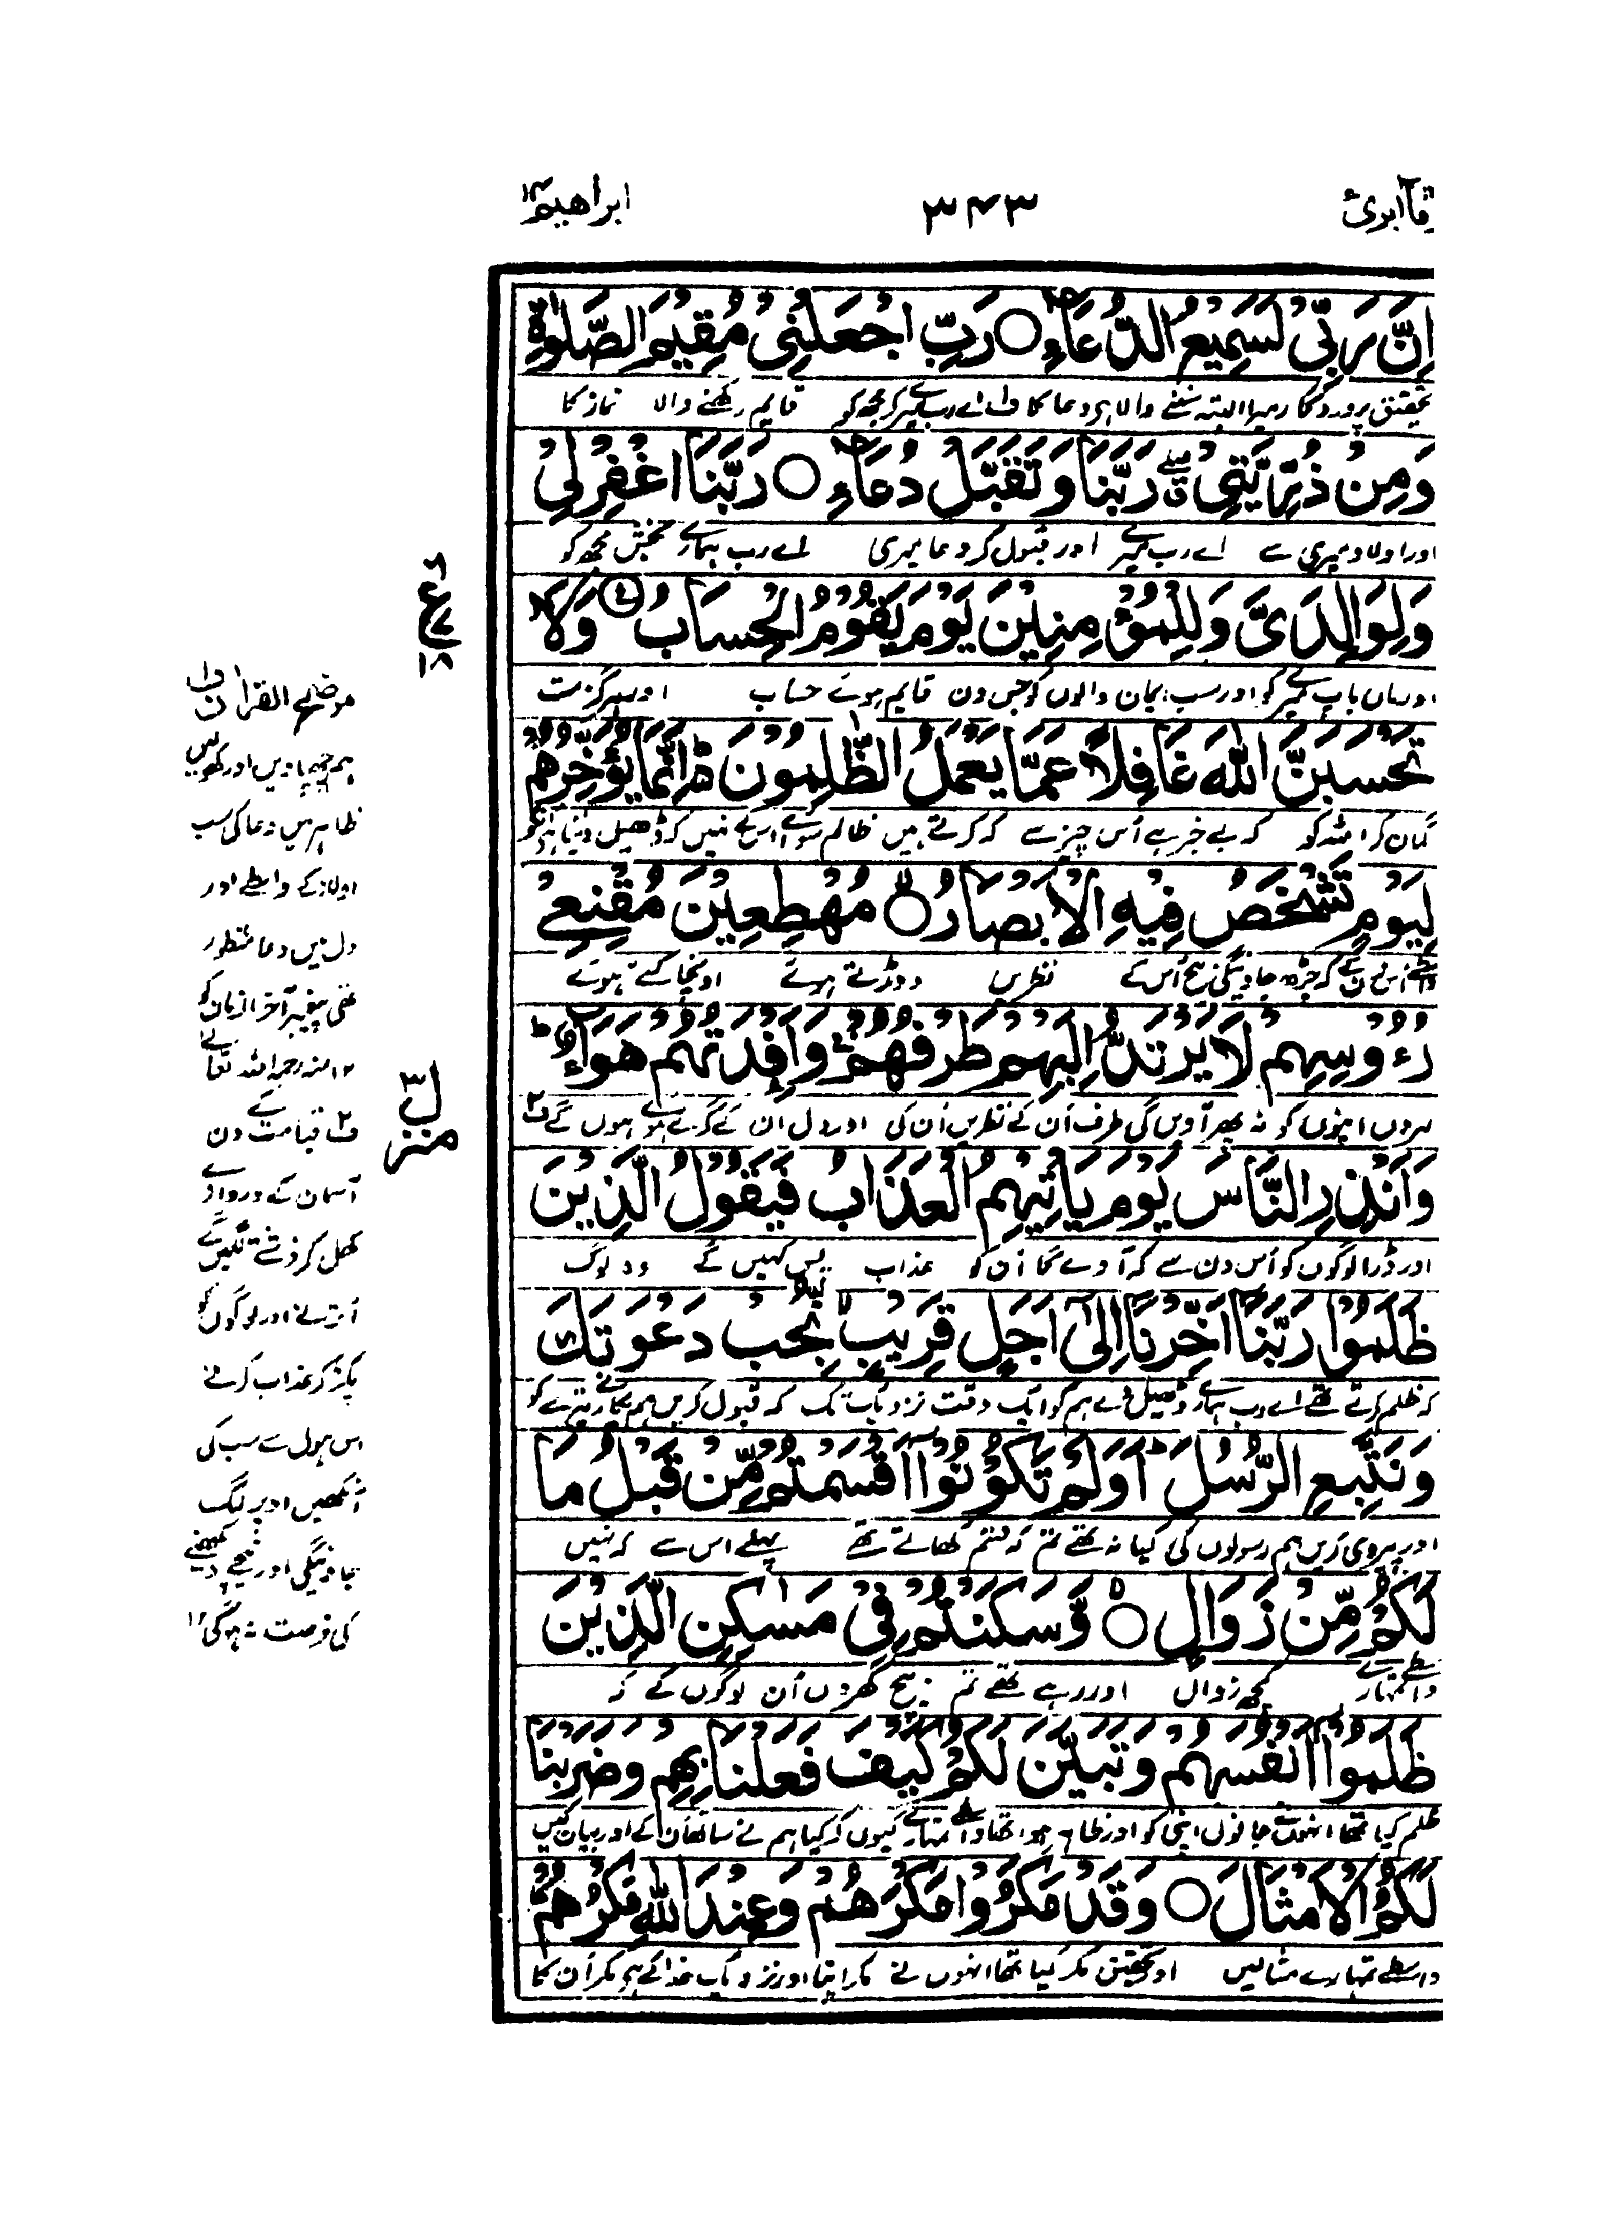 ابراهیم ۱۴
۳۴۳
وما ابرئ ۱۳
اِنَّ رَبِّیْ لَسَمِیْعُ الدُّعَآءِ ○ رَبِّ اجْعَلْنِیْ مُقِیْمَ الصَّلٰوةِ
تحقیق پروردگار میرا البتہ سننے والا ہی دعا کا ف۱ اے رب میرے کر مجھ کو قایم رکھنے والا نماز کا
وَمِنْ ذُرِّیَّتِیْ رَبَّنَا وَتَقَبَّلْ دُعَآءِ ○ رَبَّنَا اغْفِرْلِیْ
اور اولاد میری سے اے رب میرے اور قبول کر دعا میری اے رب ہمارے بخش مجھ کو
وَلِوَالِدَیَّ وَلِلْمُؤْمِنِیْنَ یَوْمَ یَقُوْمُ الْحِسَابُ وَلَا
اور ماں باپ میرے کو اور سب ایمان والوں کو جس دن قایم ہوئے حساب اور ہرگز مت
تَحْسَبَنَّ اللّٰهَ غَافِلًا عَمَّا یَعْمَلُ الظّٰلِمُوْنَ ط اِنَّمَا یُؤَخِّرُهُمْ
گمان کر اللہ کو کہ بے خبر ہے اُس چیز سے کہ کرتے ہیں ظالم سوائے اسکے نہیں کہ ڈھیل دیتا ہی انکو
لِیَوْمٍ تَشْخَصُ فِیْهِ الْاَبْصَارُ ○ مُهْطِعِیْنَ مُقْنِعِیْ
واسطے اُس دن کے کہ چڑھ جاوینگی بیچ اُس کے نظریں دوڑتے ہوئے اونچا کیے ہوئے
رُءُوْسِهِمْ لَا یَرْتَدُّ اِلَیْهِمْ طَرْفُهُمْ وَاَفْئِدَتُهُمْ هَوَآءٌ ط
سروں اپنوں کو نہ پھر آویں گی طرف اُن کے نظریں اُن کی اور دل ان کے گرے ہوئے ہوں گے ف۲
وَاَنْذِرِ النَّاسَ یَوْمَ یَاْتِیْهِمُ الْعَذَابُ فَیَقُوْلُ الَّذِیْنَ
اور ڈرا لوگوں کو اُس دن سے کہ آوے گا اُن کو عذاب پس کہیں گے وہ لوگ
ظَلَمُوْا رَبَّنَا اَخِّرْنَا اِلٰی اَجَلٍ قَرِیْبٍ نُّجِبْ دَعْوَتَكَ
کہ ظلم کرتے تھے اے رب ہمارے ڈھیل دے ہم کو ایک وقت نزدیک تک کہ قبول کریں ہم پکارنے تیرے کو
وَنَتَّبِعِ الرُّسُلَ ط اَوَلَمْ تَكُوْنُوْا اَقْسَمْتُمْ مِّنْ قَبْلُ مَا
اور پیروی کریں ہم رسولوں کی کیا نہ تھے تم کہ قسم کھاتے تھے پہلے اس سے کہ نہیں
لَكُمْ مِّنْ زَوَالٍ ○ وَّسَكَنْتُمْ فِیْ مَسٰكِنِ الَّذِیْنَ
واسطے تمہارے کچھ زوال اور رہے تھے تم بیچ گھروں اُن لوگوں کے کہ
ظَلَمُوْا اَنْفُسَهُمْ وَتَبَیَّنَ لَكُمْ كَیْفَ فَعَلْنَا بِهِمْ وَضَرَبْنَا
ظلم کیا تھا انہوں نے جانوں اپنی کو اور ظاہر ہوا تھا واسطے تمہارے کیوں کر کیا ہم نے ساتھ اُن کے اور بیان کیں
لَكُمُ الْاَمْثَالَ ○ وَقَدْ مَكَرُوْا مَكْرَهُمْ وَعِنْدَ اللّٰهِ مَكْرُهُمْ
واسطے تمہارے مثالیں اور تحقیق مکر کیا تھا انہوں نے مکر اپنا اور نزدیک خدا کے ہی مکر اُن کا
ع
۷
۱۸
منزل ۳
موضح القرآن ف۱
ظاہر میں دعا کی سب
اولاد کے واسطے اور
دل میں دعا منظور
تھی پیغمبر آخر الزمان کو
۱۲ منہ رحمہ اللہ تعالے
ف۲ قیامت کے دن
آسمان کے دروازے
کھل کر فرشتے لگیں گے
اُترنے اور لوگوں کو
پکڑ کر عذاب کرنے
اس ہول سے سب کی
آنکھیں اوپر لگ
جاوینگی اور نیچے دیکھنے
کی فرصت نہ ہو گی ۱۲